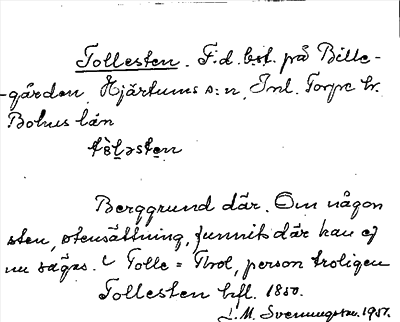 Tollesten. F.d. bst. på Bille-
-gården, Hjärtums s:n, Inl. Torpe hr.
Bohus län
tòləsten
Berggrund där. Om någon
sten, stensättning, funnits där kan ej
nu sägas. Tolle = Thol, person troligen
Tollesten bfl. 1850.
J. M. Svenningson. 1951.